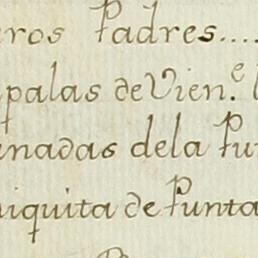 ros Padres....
palas de Vien.e
nadas dela Pu
iquita de Punta